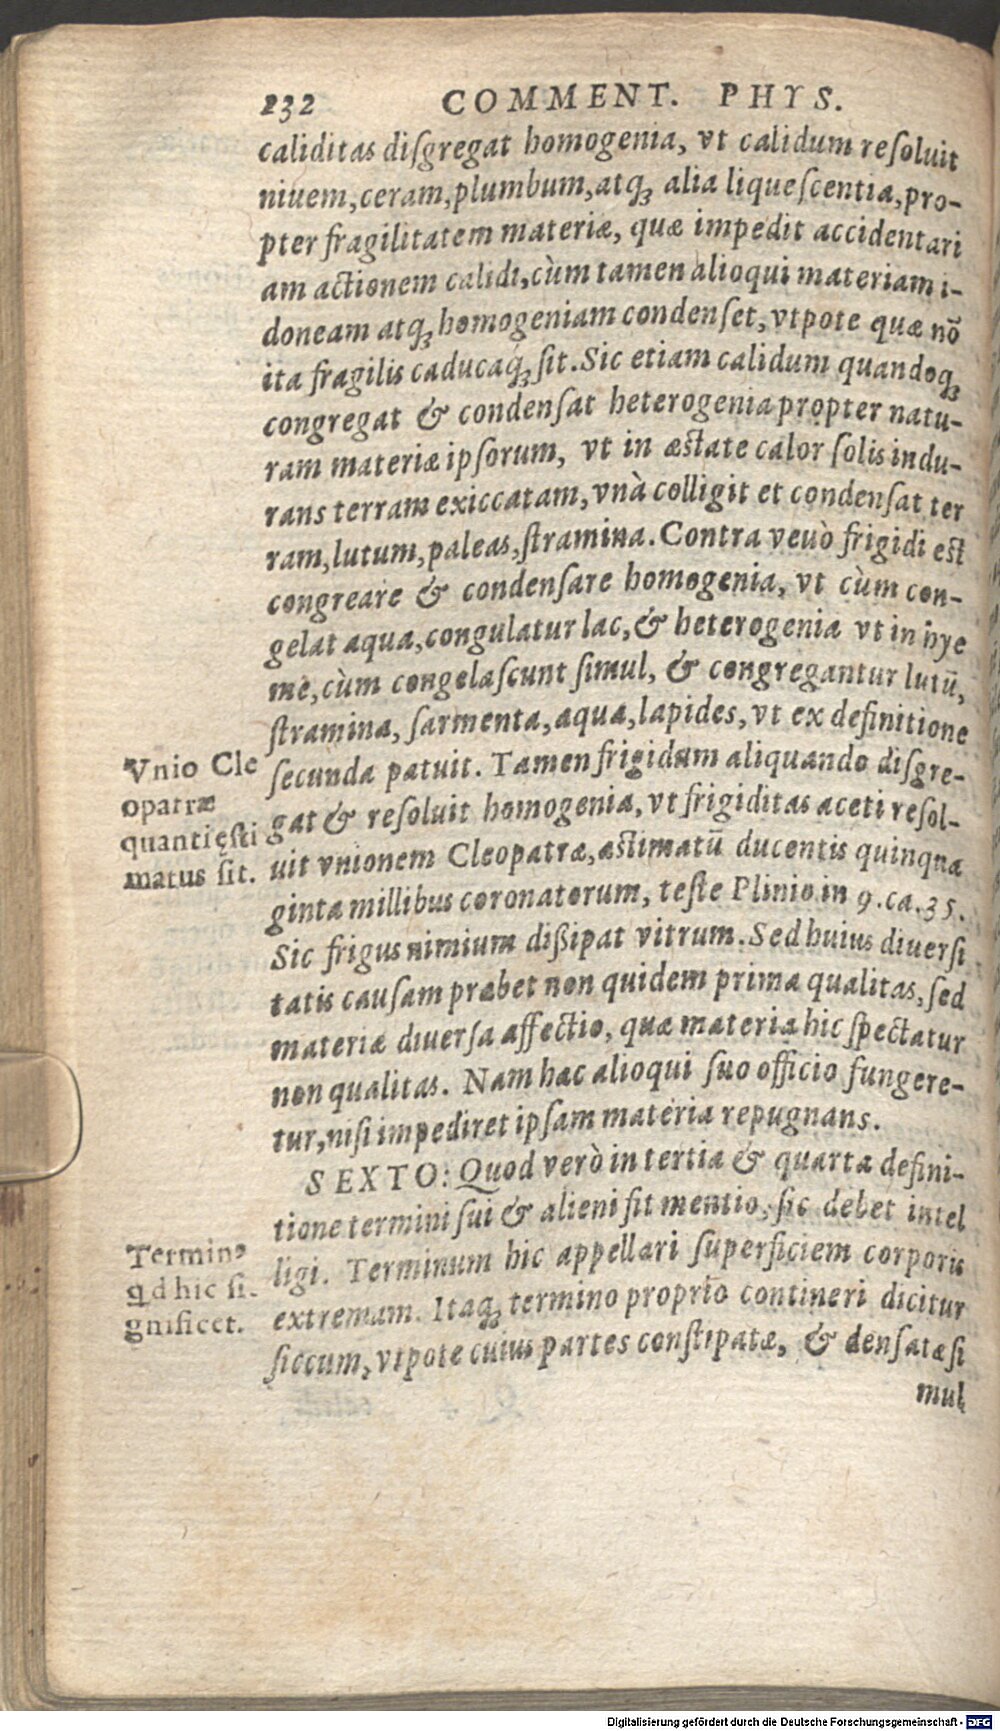 232 COMMENT. PHYS.
caliditas diſgregat homogenia, vt calidum reſoluit
niuem, ceram, plumbum, atqꝫ alia liqueſcentia, pro-
pter fragilitatem materiæ, quæ impedit accidentari
am actionem calidi, cùm tamen alioqui materiam i-
doneam atqꝫ homogeniam condenſet, vtpote quæ nō
ita fragilis caducaqꝫ ſit. Sic etiam calidum quandoqꝫ
congregat & condenſat heterogenia propter natu-
ram materiæ ipſorum, vt in æſtate calor ſolis indu-
rans terram exiccatam, vnà colligit et condenſat ter
ram, lutum, paleas, ſtramina. Contra veuò frigidi eſt
congreare & condenſare homogenia, vt cùm con-
gelat aqua, congulatur lac, & heterogenia vt in hye
me, cùm congelaſcunt ſimul, & congregantur lutū,
ſtramina, ſarmenta, aqua, lapides, vt ex definitione
ſecunda patuit. Tamen frigidum aliquando diſgre-
gat & reſoluit homogenia, vt frigiditas aceti reſol-
uit vnionem Cleopatræ, æſtimatū ducentis quinqua
ginta millibus coronatorum, teſte Plinio in 9. ca. 35.
Sic frigus nimium dißipat vitrum. Sed huius diuerſi
tatis cauſam præbet non quidem prima qualitas, ſed
materiæ diuerſa affectio, quæ materia hic ſpectatur
non qualitas. Nam hæc alioqui ſuo officio fungere-
tur, niſi impediret ipſam materia repugnans.
SEXTO: Quod verò in tertia & quarta defini-
tione termini ſui & alieni fit mentio, ſic debet intel
ligi. Terminum hic appellari ſuperficiem corporis
extremam. Itaqꝫ termino proprio contineri dicitur
ſiccum, vtpote cuius partes conſtipatæ, & denſatæ ſi
mul
Vnio Cle
opatræ
quanti ęſti
matus ſit.
Terminꝰ
qd hic ſi-
gnificet.
Digitalisierung gefördert durch die Deutsche Forschungsgemeinschaft - DFG